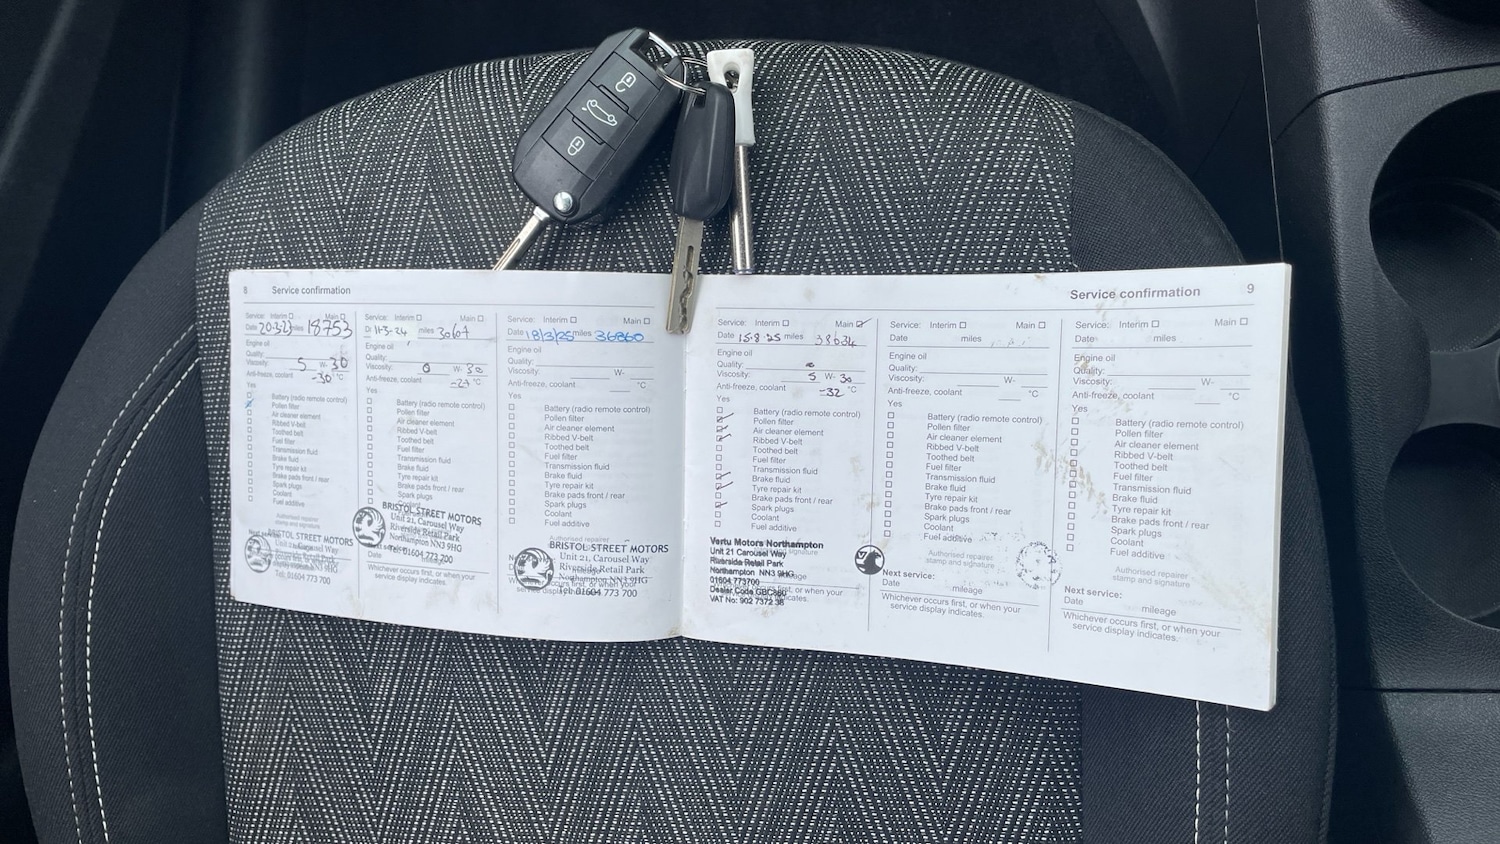 8 Service confirmation
Service: Interim Main
Date 20.3.23 miles 18753
Engine oil
Quality:
Viscosity: 5 W- 30
Anti-freeze, coolant -30 °C
Yes
Battery (radio remote control)
Pollen filter
Air cleaner element
Ribbed V-belt
Toothed belt
Fuel filter
Transmission fluid
Brake fluid
Tyre repair kit
Brake pads front / rear
Spark plugs
Coolant
Fuel additive
Authorised repairer
stamp and signature
BRISTOL STREET MOTORS
Unit 21, Carousel Way
Riverside Retail Park
Tel: 01604 773 700
Service: Interim Main
11-3-24 miles
Engine oil
Quality:
Viscosity: 0 W- 30
Anti-freeze, coolant °C
Yes
Battery (radio remote control)
Pollen filter
Air cleaner element
Ribbed V-belt
Toothed belt
Fuel filter
Transmission fluid
Brake fluid
Tyre repair kit
Brake pads front / rear
Spark plugs
BRISTOL STREET MOTORS
Unit 21, Carousel Way
Riverside Retail Park
Northampton NN3 9HG
Tel: 01604 773 700
Date mileage
Whichever occurs first, or when your
service display indicates.
Service: Interim Main
Date 18/3/25 miles 36860
Engine oil
Quality:
Viscosity: W-
Anti-freeze, coolant °C
Yes
Battery (radio remote control)
Pollen filter
Air cleaner element
Ribbed V-belt
Toothed belt
Fuel filter
Transmission fluid
Brake fluid
Tyre repair kit
Brake pads front / rear
Spark plugs
Coolant
Fuel additive
Authorised repairer
BRISTOL STREET MOTORS
Unit 21, Carousel Way
Riverside Retail Park
Northampton NN3 9HG
Tel: 01604 773 700
Service confirmation 9
Service: Interim Main
Date 15.8.25 miles 38634
Engine oil
Quality:
Viscosity: 5 W- 30
Anti-freeze, coolant -32 °C
Yes
Battery (radio remote control)
Pollen filter
Air cleaner element
Ribbed V-belt
Toothed belt
Fuel filter
Transmission fluid
Brake fluid
Tyre repair kit
Brake pads front / rear
Spark plugs
Coolant
Fuel additive
Vertu Motors Northampton
Unit 21 Carousel Way
Riverside Retail Park
Northampton NN3 9HG
01604 773700
Dealer Code
VAT No: 902 7372 38
Service: Interim Main
Date miles
Engine oil
Quality:
Viscosity: W-
Anti-freeze, coolant °C
Yes
Battery (radio remote control)
Pollen filter
Air cleaner element
Ribbed V-belt
Toothed belt
Fuel filter
Transmission fluid
Brake fluid
Tyre repair kit
Brake pads front / rear
Spark plugs
Coolant
Fuel additive
Authorised repairer
stamp and signature
Next service:
Date mileage
Whichever occurs first, or when your
service display indicates.
Service: Interim Main
Date miles
Engine oil
Quality:
Viscosity: W-
Anti-freeze, coolant °C
Yes
Battery (radio remote control)
Pollen filter
Air cleaner element
Ribbed V-belt
Toothed belt
Fuel filter
Transmission fluid
Brake fluid
Tyre repair kit
Brake pads front / rear
Spark plugs
Coolant
Fuel additive
Authorised repairer
stamp and signature
Next service:
Date mileage
Whichever occurs first, or when your
service display indicates.